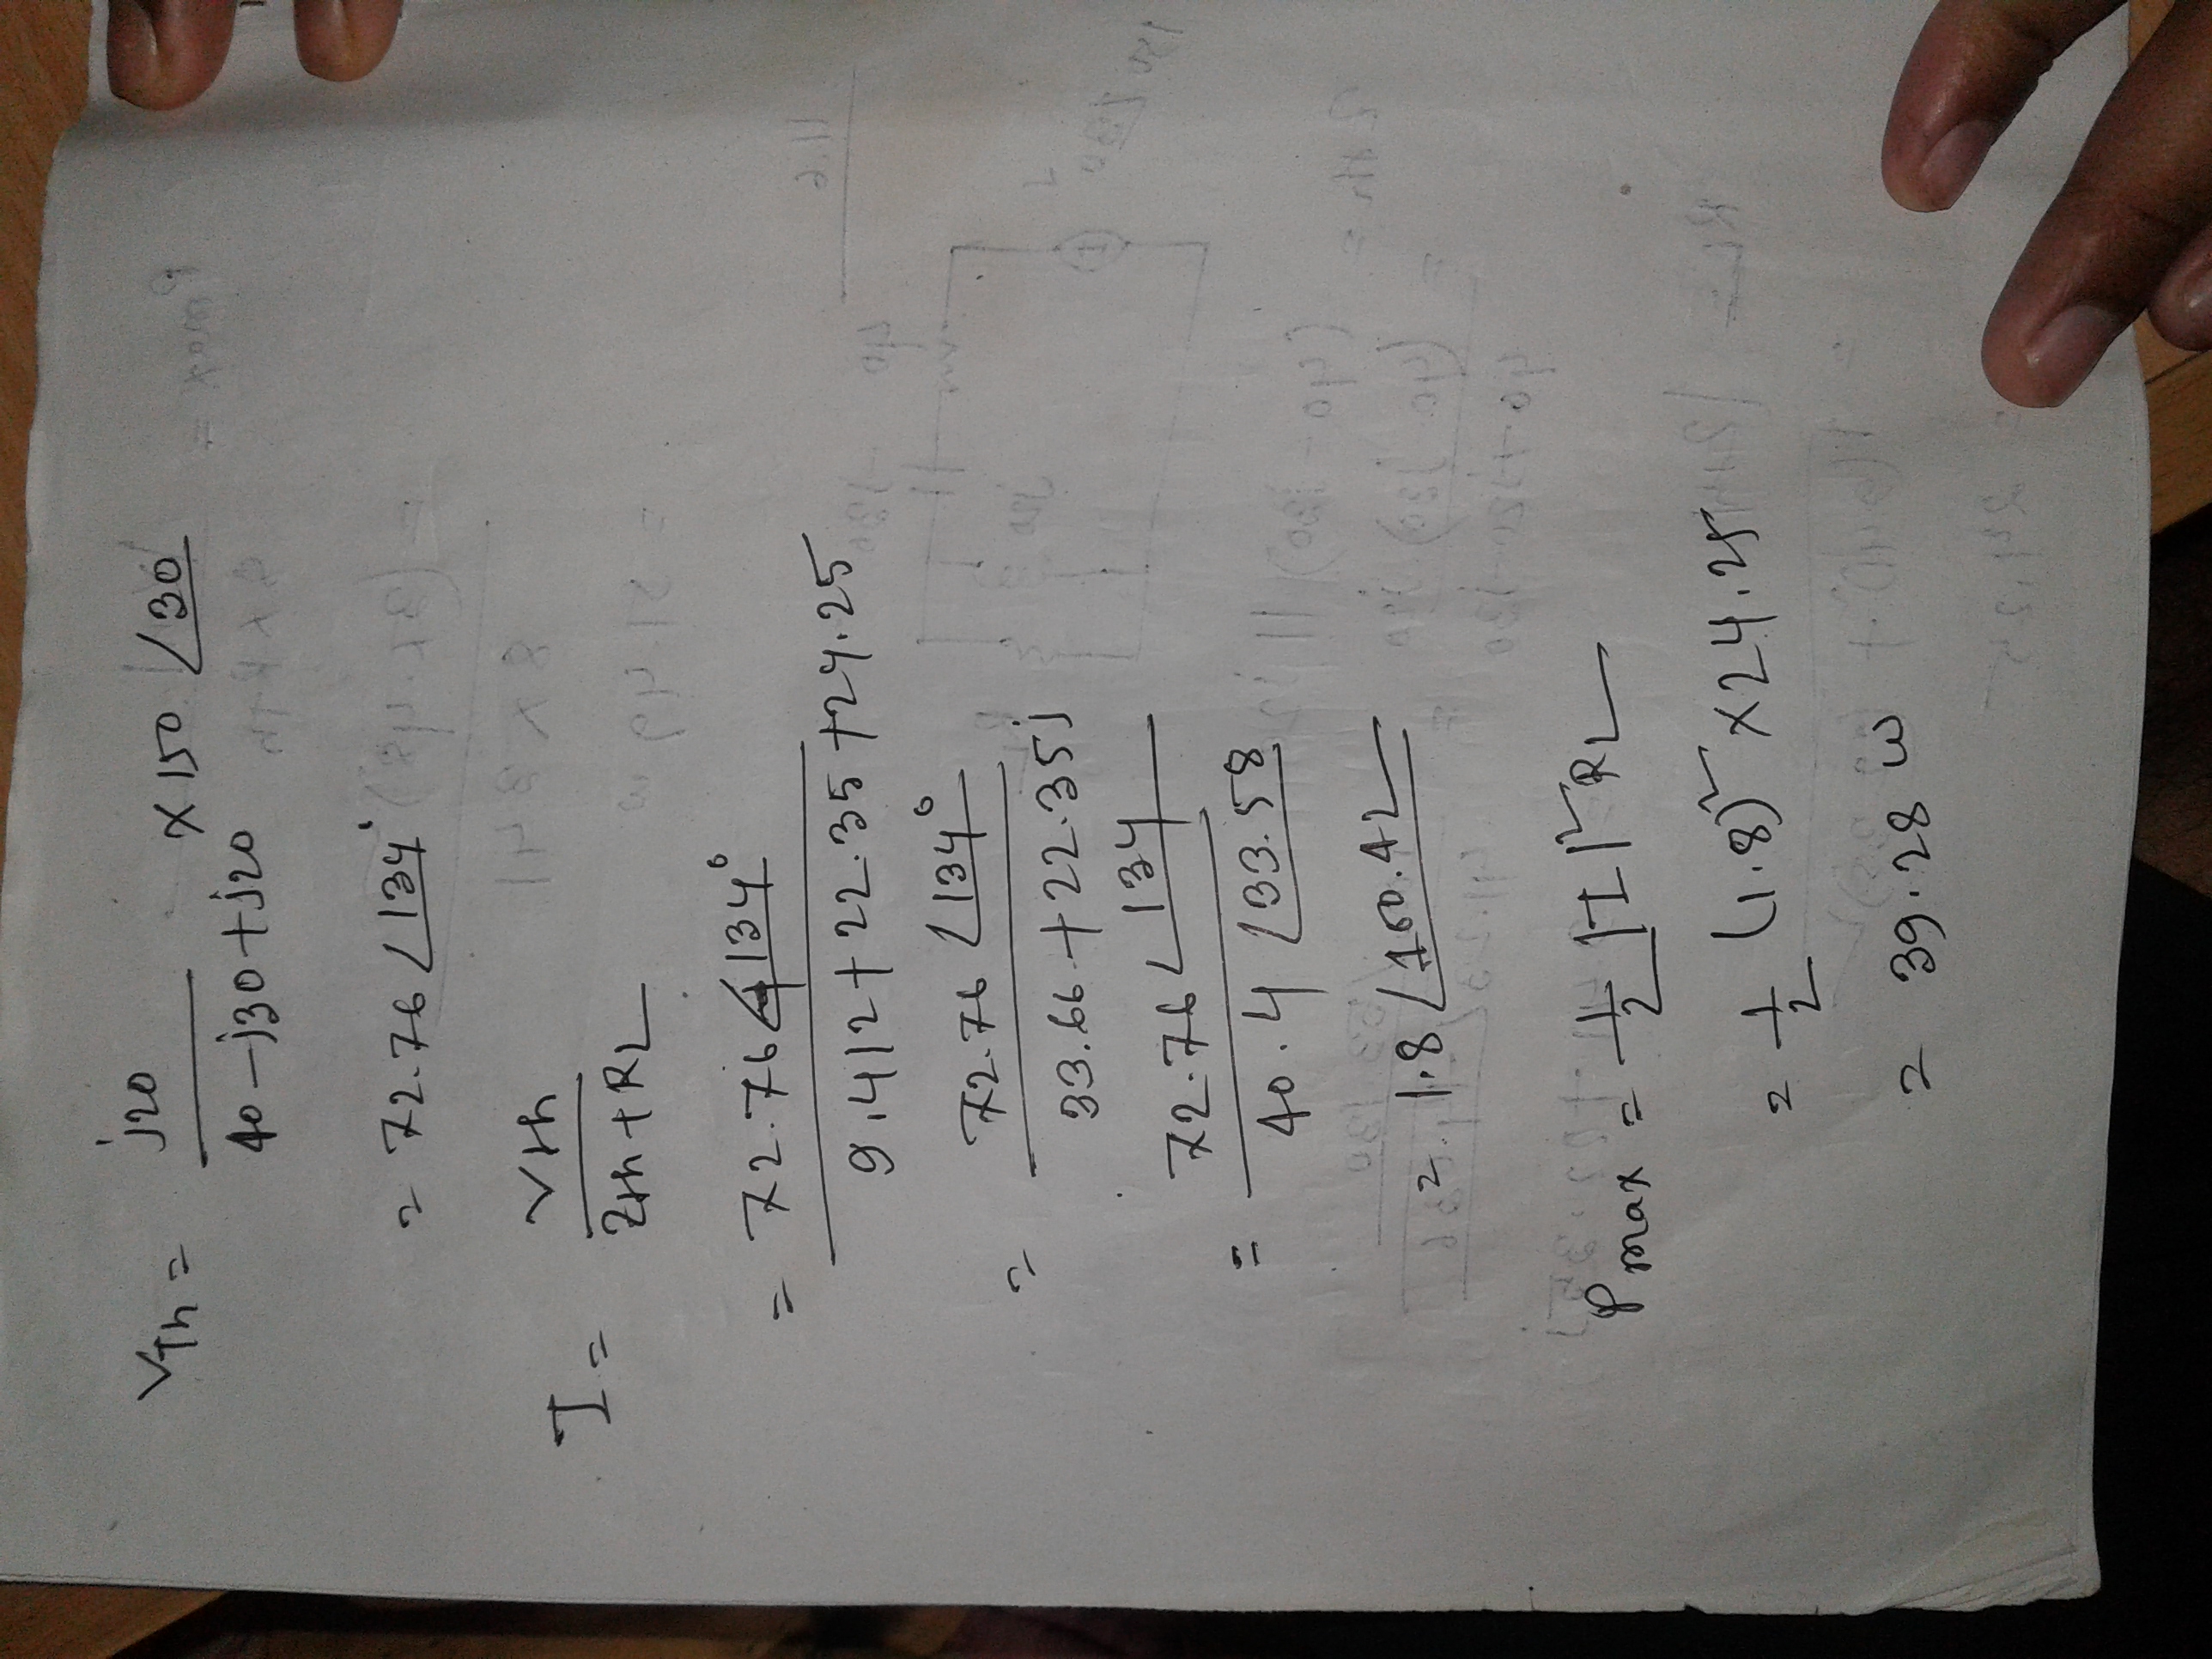 VTh = j20 / 40 - j30 + j20 × 150 ∠30
= 72.76 ∠134°
I = Vth / Zth + RL
= 72.76 ∠134° / 9.412 + 22.35 + 24.25
= 72.76 ∠134° / 33.66 + 22.35j
= 72.76 ∠134 / 40.4 ∠33.58
= 1.8 ∠100.42
Pmax = 1/2 |I|² RL
= 1/2 (1.8)² × 24.25
= 39.28 W